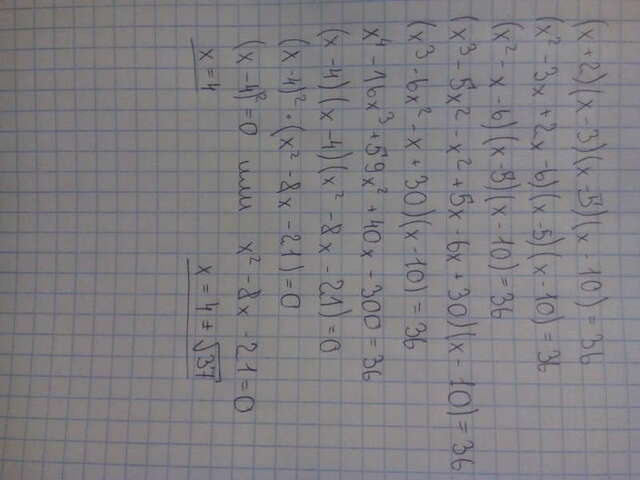 (x+2)(x-3)(x-5)(x-10)=36
(x²-3x+2x-6)(x-5)(x-10)=36
(x²-x-6)(x-5)(x-10)=36
(x³-5x²-x²+5x-6x+30)(x-10)=36
(x³-6x²-x+30)(x-10)=36
x⁴-16x³+59x²+40x-300=36
(x-4)(x-4)(x²-8x-21)=0
(x-4)²·(x²-8x-21)=0
(x-4)²=0 или x²-8x-21=0
x=4 x=4±√37